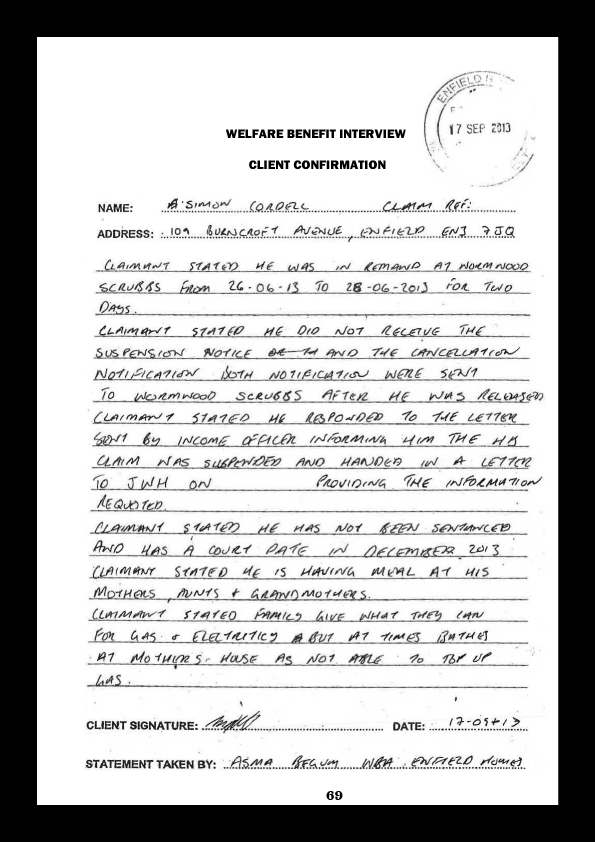 ENFIELD H
17 SEP 2013
WELFARE BENEFIT INTERVIEW
CLIENT CONFIRMATION
NAME: A. SIMON CORDELL CLAIM REF:
ADDRESS: 109 BURNCROFT AVENUE, ENFIELD EN3 7JQ
CLAIMANT STATED HE WAS IN REMAND AT WORMWOOD
SCRUBBS FROM 26-06-13 TO 28-06-2013 FOR TWO
DAYS.
CLAIMANT STATED HE DID NOT RECEIVE THE
SUSPENSION NOTICE AND THE CANCELLATION
NOTIFICATION BOTH NOTIFICATION WERE SENT
TO WORMWOOD SCRUBBS AFTER HE WAS RELEASED
CLAIMANT STATED HE RESPONDED TO THE LETTER
SENT BY INCOME OFFICER INFORMING HIM THE HB
CLAIM WAS SUSPENDED AND HANDED IN A LETTER
TO JWH ON PROVIDING THE INFORMATION
REQUESTED.
CLAIMANT STATED HE HAS NOT BEEN SENTANCED
AND HAS A COURT DATE IN DECEMBER 2013
CLAIMANT STATED HE IS HAVING MEAL AT HIS
MOTHERS, AUNTS & GRANDMOTHERS.
CLAIMANT STATED FAMILY GIVE WHAT THEY CAN
FOR GAS & ELECTRITICY BUT AT TIMES BATHES
AT MOTHERS HOUSE AS NOT ABLE TO TOP UP
GAS.
CLIENT SIGNATURE: DATE: 17-09-13
STATEMENT TAKEN BY: ASMA BEGUM WBA. ENFIELD HOMES
69